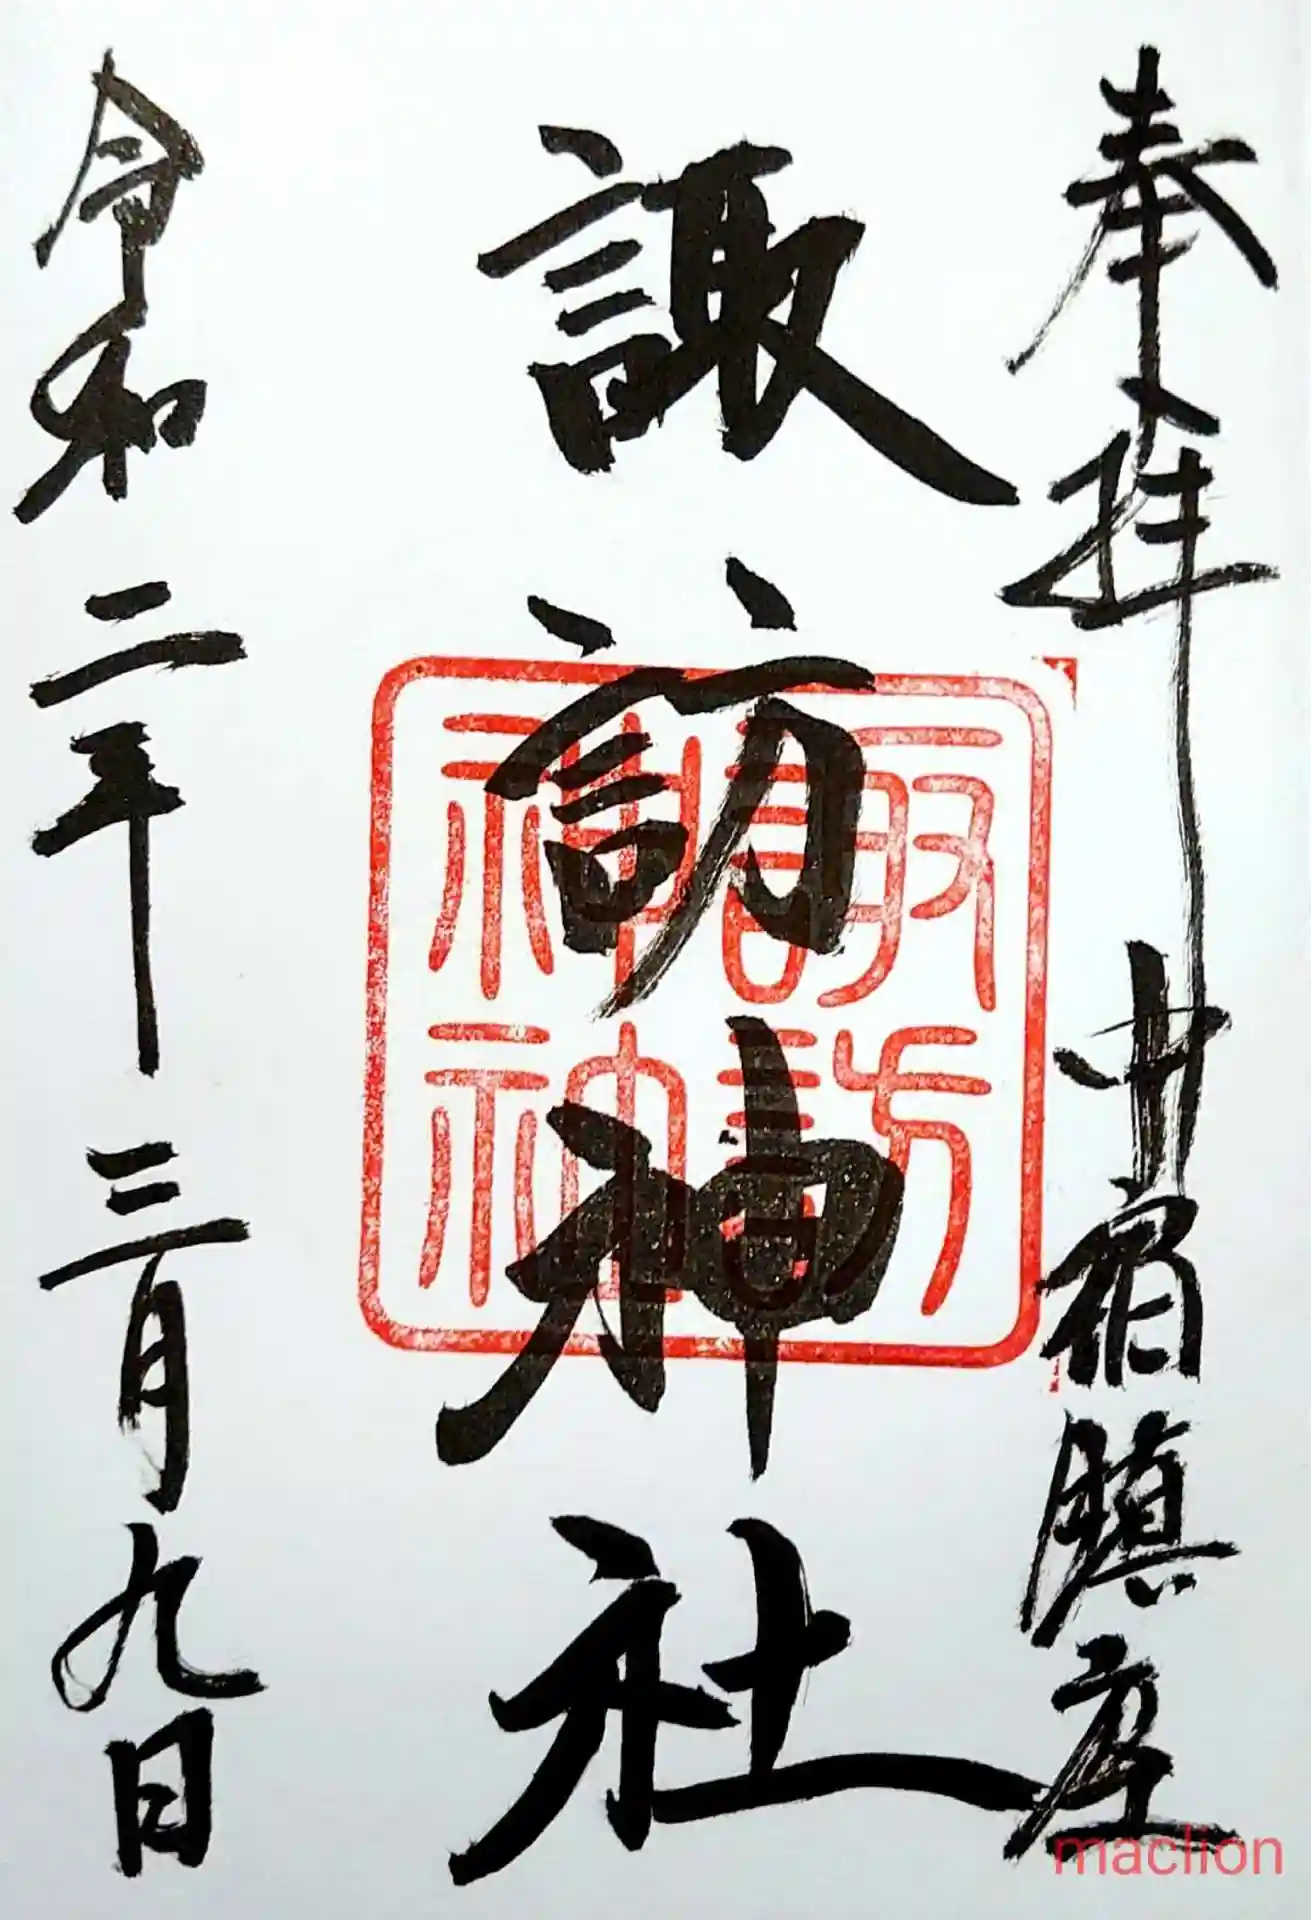 奉拝 中宿鎮座
諏訪神社
令和二年三月九日
諏訪
神
maclion